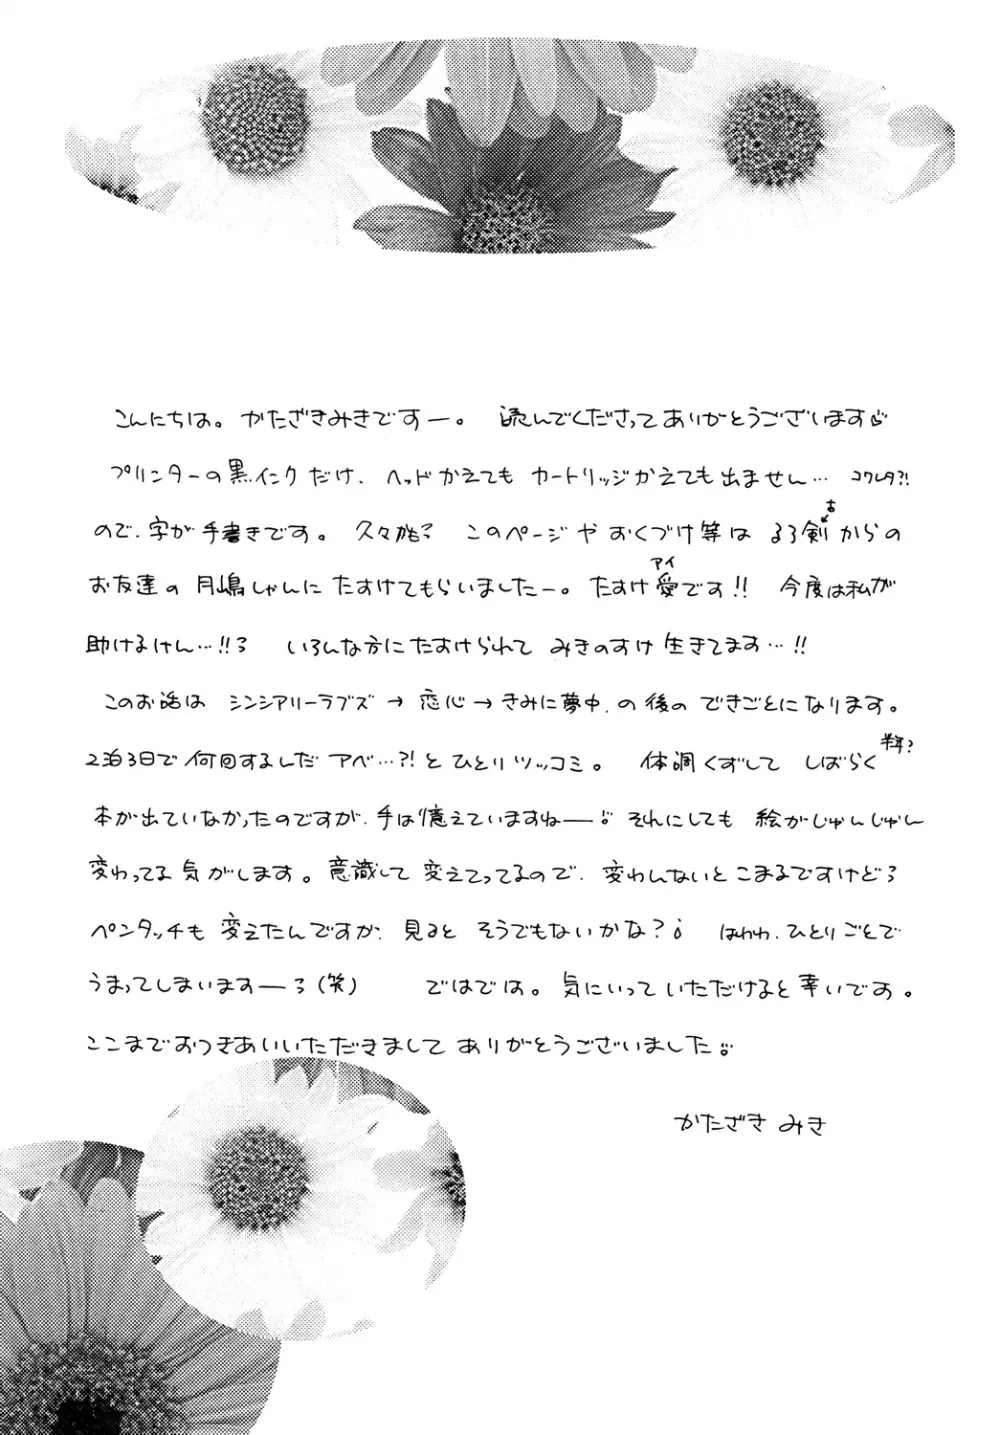 こんにちは。かたざきみきですー。 読んでくださってありがとうございます
プリンターの黒インクだけ、ヘッドかえてもカートリッジかえても出ません… コワレタ?!
ので、字が手書きです。 久々 このページやおくづけ等はるろ剣からの
古
お友達の月嶋しゃんにたすけてもらいましたー。たすけ愛です!! 今度は私が
アイ
助けるけん…!! いろんな方にたすけられてみきのすけ生きてます…!!
このお話はシンシアリーラブズ→恋心→きみに夢中.の後のできごとになります。
2泊3日で何回するしだアベ…?!とひとりツッコミ。 体調くずしてしばらく
半年?
本が出ていなかったのですが、手は憶えていますねーー それにしても絵がじゅんじゅん
変わってる気がします。意識して変えてってるので、変わんないとこまるですけど
ペンタッチも変えたんですが、見るとそうでもないかな? はわわ、ひとりごとで
うまってしまいますーー(笑) ではでは。気にいっていただけると幸いです。
ここまでおつきあいいただきましてありがとうございました
かたざき みき